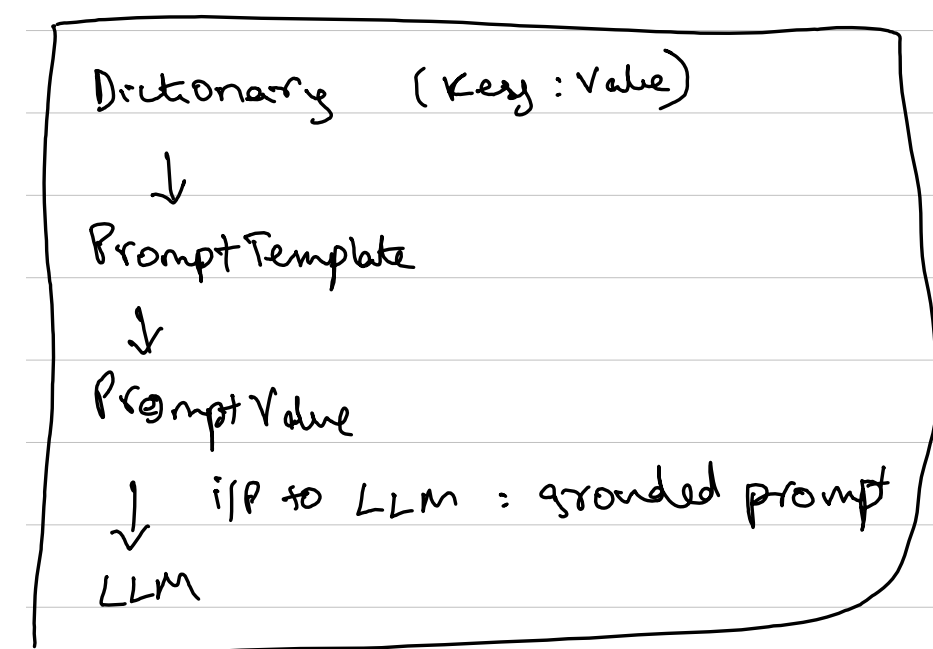 Dictionary (Key : Value)
↓
PromptTemplate
↓
PromptValue
↓ i/p to LLM : grounded prompt
LLM